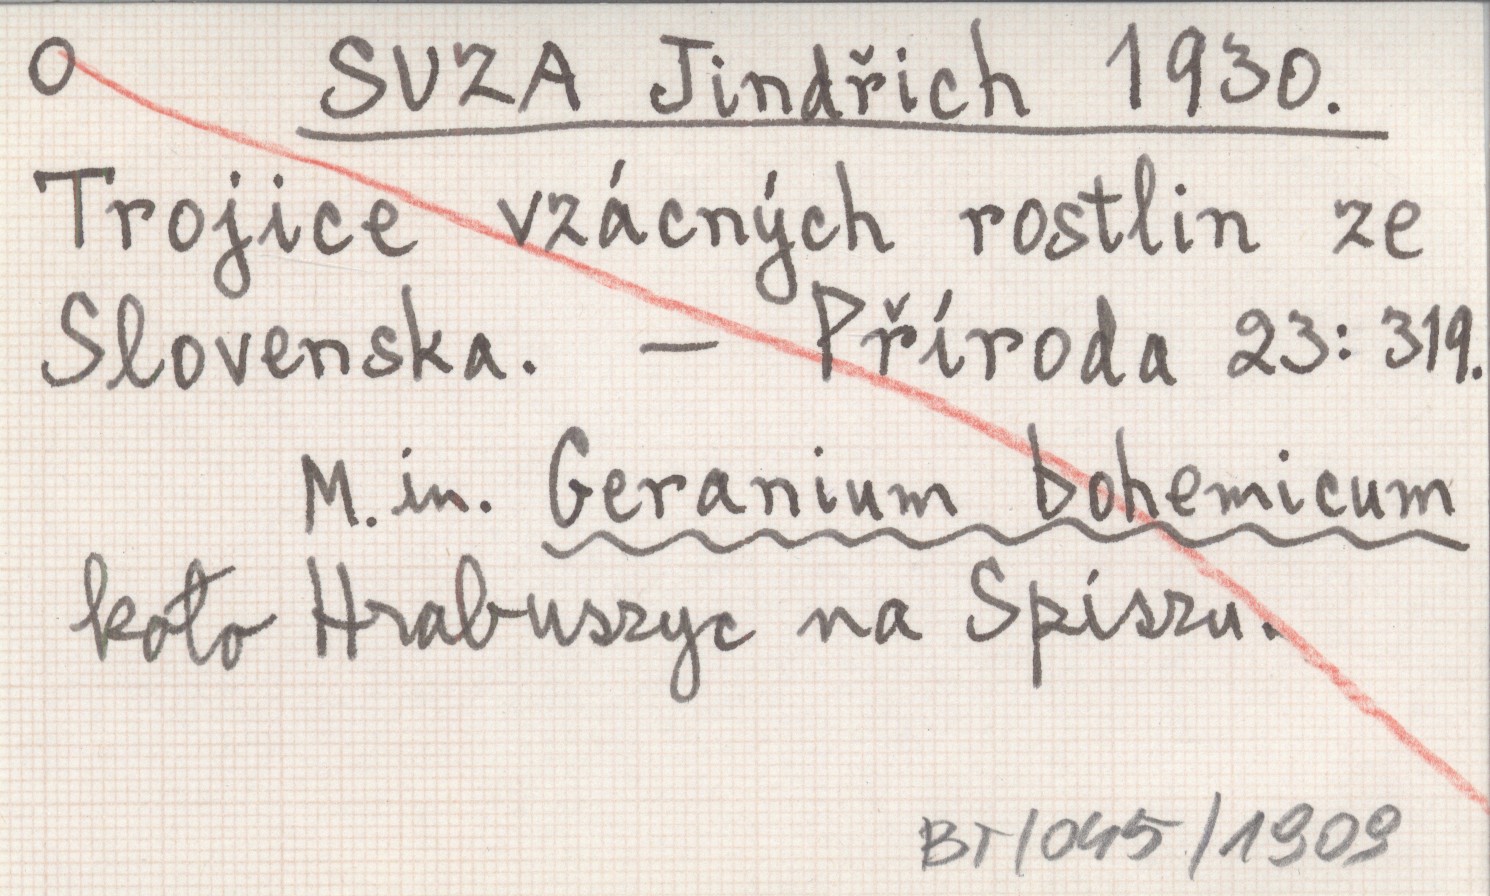 O SUZA Jindřich 1930.
Trojice vzácných rostlin ze
Slovenska. — Příroda 23: 319.
M. in. Geranium bohemicum
koło Hrabuszyc na Spiszu.
BT/045/1909